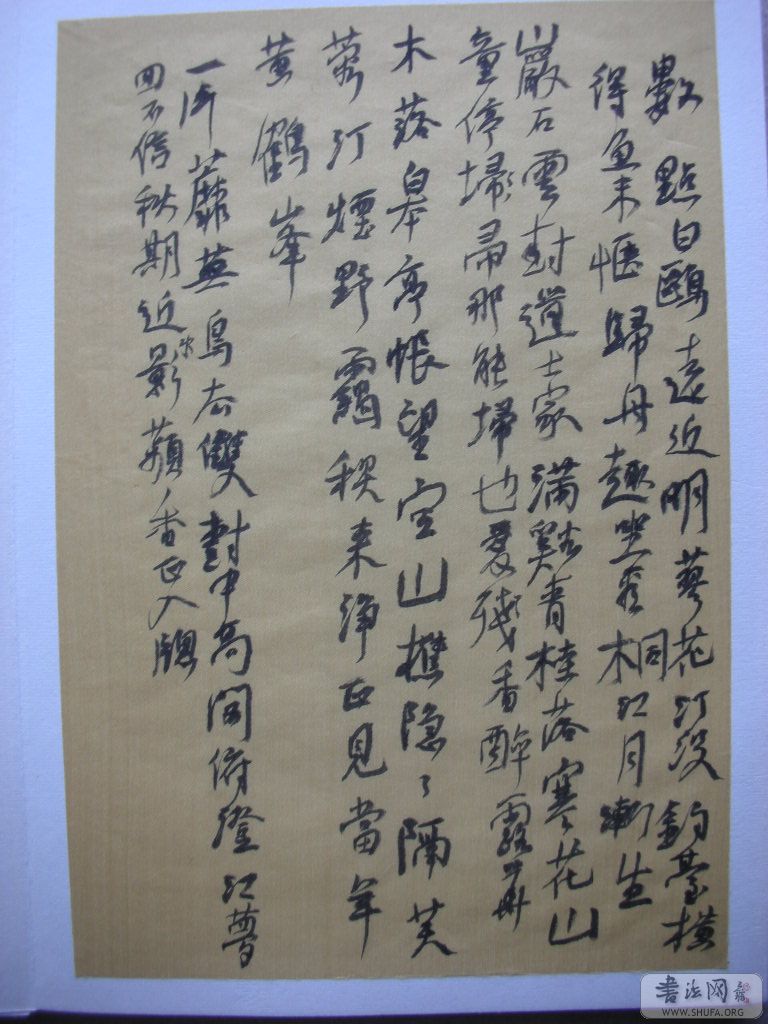 數點白鷗遠近明蓼花汀沒釣臺橫
得魚未愜歸舟趣坐看桐江月漸生
巖石雲封道士家滿谿青桂落寒花山
童停埽帚那能埽也愛殘香醉露
木落皋亭悵望空山樵隐隔芙
蓉汀煙野靄秋來淨正見當年
黃鶴峯
一片蘼蕪鳥亦雙對中高閣俯澄江
回不信秋期近影蘋香正入牕
書法网
WWW.SHUFA.ORG